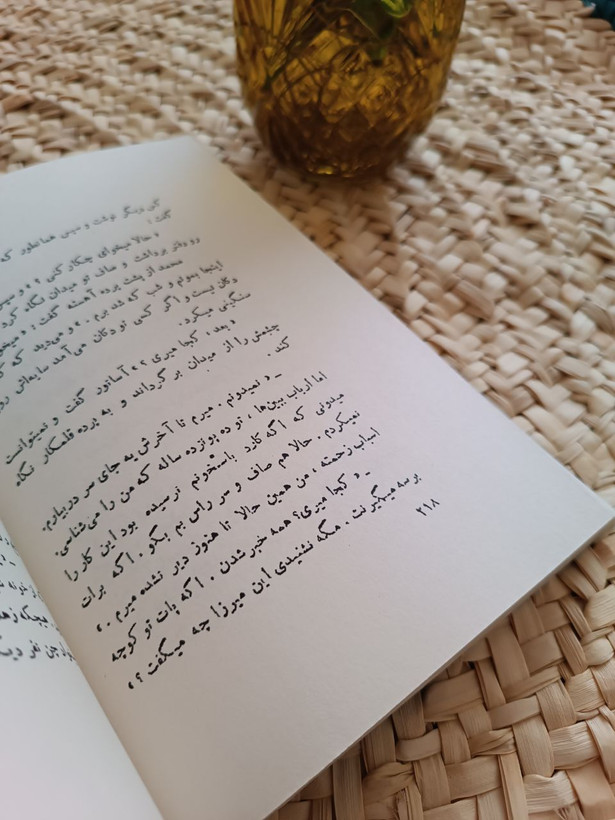 گفت:
« حالا میخوای چکار کنی ؟
رو دفتر برداشت و صاف تو میدان نگاه کرد
محمد از پشت پرده آهسته گفت : «
اینجا بمونم و شب که شد برم . » و میدید که
دکان بست و اگر کسی تو دکان می آمد سایه‌اش رو
سنگینی میکرد.
« بعد ، کجا میری ؟ » آساتور گفت و نمیتوانست
چشمش را از میدان بر گرداند و به پرده قلمکار نگاه
کند .
ـ « نمیدونم . میرم تا آخرش یه جای سر در بیارم.
اما ارباب ببین‌ها ، تو ده پونزده ساله که من را می‌شناسی.
میدونی که اگه کارد باسخونم نرسیده بود این کار را
نمیکردم . حالا هم صاف و سر راس بم بگو . اگه برات
اسباب زحمته ، من همین حالا تا هنوز دیر نشده میرم . »
ـ « کجا میری؟ همه خبر شدن . اگه پات تو کوچه
برسه میگیرنت . مگه نشنیدی این میرزا چه میگفت ؟ »
۲۱۸